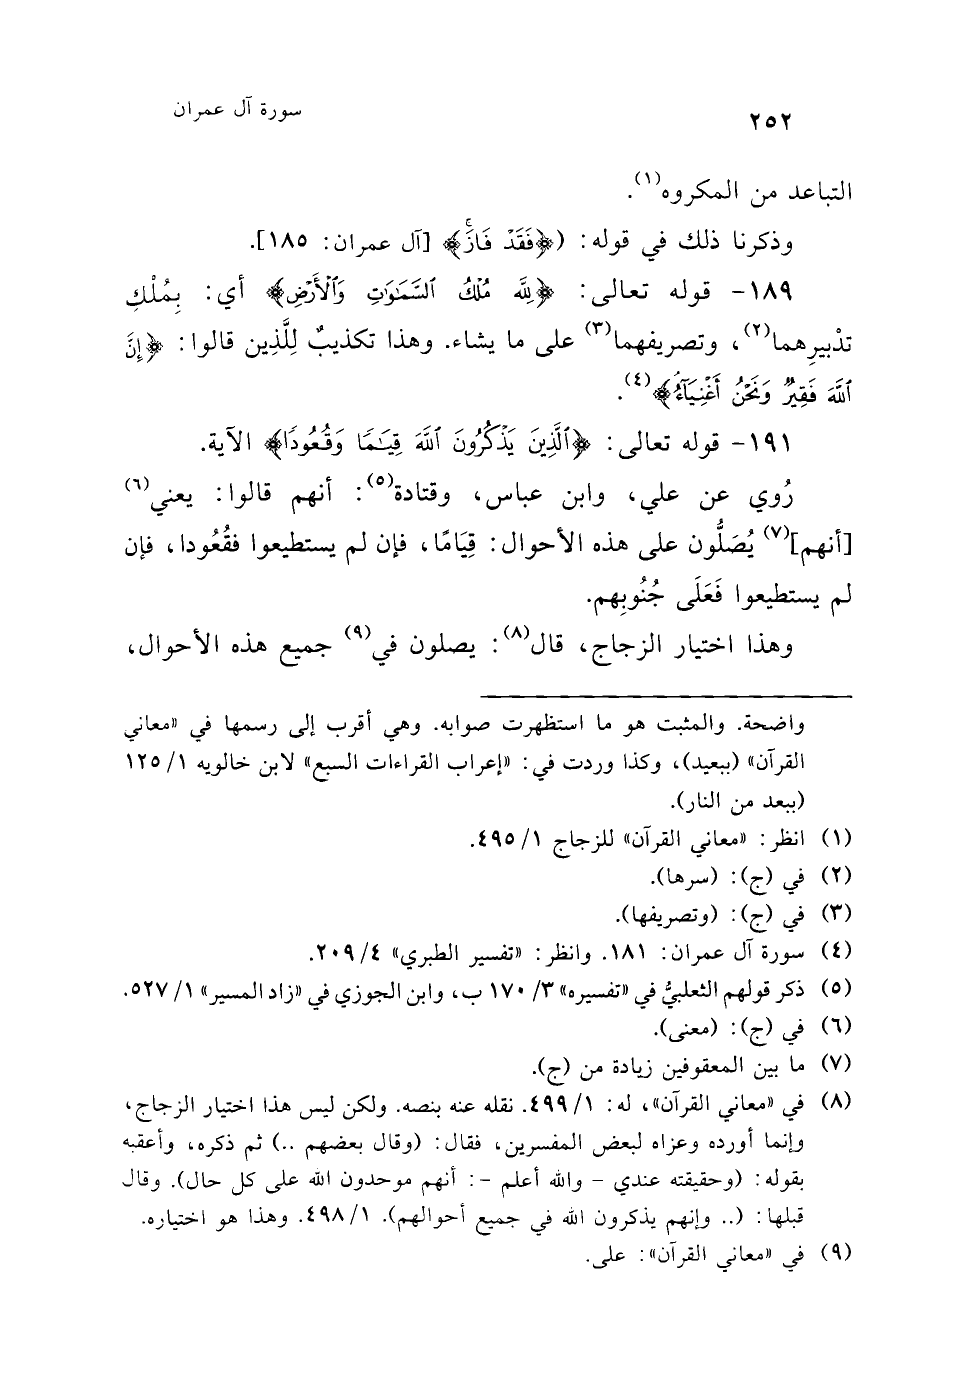 ٢٥٢ سورة آل عمران
التباعد من المكروه(١).
وذكرنا ذلك في قوله: (﴿فَقَدْ فَازَ﴾ [آل عمران: ١٨٥].
١٨٩- قوله تعالى: ﴿لِلَّهِ مُلْكُ السَّمَاوَاتِ وَالْأَرْضِ﴾ أي: بِمُلْكِ
تدْبيرِهما(٢)، وتصريفهما(٣) على ما يشاء. وهذا تكذيبٌ لِلَّذين قالوا: ﴿إِنَّ
اللَّهَ فَقِيرٌ وَنَحْنُ أَغْنِيَاءُ﴾(٤).
١٩١- قوله تعالى: ﴿الَّذِينَ يَذْكُرُونَ اللَّهَ قِيَامًا وَقُعُودًا﴾ الآية.
رُوي عن علي، وابن عباس، وقتادة(٥): أنهم قالوا: يعني(٦)
[أنهم](٧) يُصَلُّون على هذه الأحوال: قِيَامًا، فإن لم يستطيعوا فقُعُودا، فإن
لم يستطيعوا فَعَلَى جُنُوبِهم.
وهذا اختيار الزجاج، قال(٨): يصلون في(٩) جميع هذه الأحوال،
واضحة. والمثبت هو ما استظهرت صوابه. وهي أقرب إلى رسمها في «معاني
القرآن» (ببعيد)، وكذا وردت في: «إعراب القراءات السبع» لابن خالويه ١/ ١٢٥
(ببعد من النار).
(١) انظر: «معاني القرآن» للزجاج ١/ ٤٩٥.
(٢) في (ج): (سرها).
(٣) في (ج): (وتصريفها).
(٤) سورة آل عمران: ١٨١. وانظر: «تفسير الطبري» ٤/ ٢٠٩.
(٥) ذكر قولهم الثعلبيُّ في «تفسيره» ٣/ ١٧٠ ب، وابن الجوزي في «زاد المسير» ١/ ٥٢٧.
(٦) في (ج): (معنى).
(٧) ما بين المعقوفين زيادة من (ج).
(٨) في «معاني القرآن»، له: ١/ ٤٩٩. نقله عنه بنصه. ولكن ليس هذا اختيار الزجاج،
وإنما أورده وعزاه لبعض المفسرين، فقال: (وقال بعضهم ..) ثم ذكره، وأعقبه
بقوله: (وحقيقته عندي - والله أعلم -: أنهم موحدون الله على كل حال). وقال
قبلها: (.. وإنهم يذكرون الله في جميع أحوالهم). ١/ ٤٩٨. وهذا هو اختياره.
(٩) في «معاني القرآن»: على.